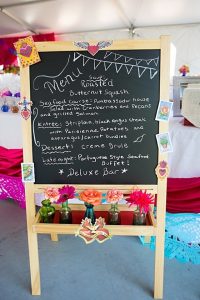 Menu
Soup
Roasted
Butternut Squash
Sea Food Course: Ambassador house
Salad with Cranberries and Pecans
and grilled Salmon
Entree: Striplain, black angus steak
with Parisienne Potatoes and
asparagus/carrot bundles
Dessert: Creme Brule
Late night: Portuguese Style Seafood
Buffet!
*Deluxe Bar*